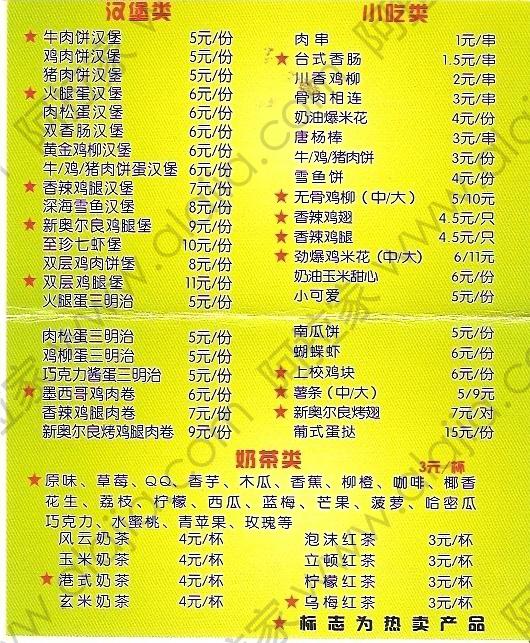 汉堡类
★牛肉饼汉堡 5元/份
鸡肉饼汉堡 5元/份
猪肉饼汉堡 5元/份
★火腿蛋汉堡 6元/份
肉松蛋汉堡 6元/份
双香肠汉堡 6元/份
黄金鸡柳汉堡 6元/份
牛/鸡/猪肉饼蛋汉堡 6元/份
★香辣鸡腿汉堡 7元/份
深海雪鱼汉堡 8元/份
★新奥尔良鸡腿堡 9元/份
至珍七虾堡 10元/份
双层鸡肉饼堡 8元/份
★双层鸡腿堡 11元/份
火腿蛋三明治 5元/份
肉松蛋三明治 5元/份
鸡柳蛋三明治 5元/份
巧克力酱蛋三明治 5元/份
★墨西哥鸡肉卷 6元/份
香辣鸡腿肉卷 7元/份
新奥尔良烤鸡腿肉卷 9元/份
小吃类
肉串 1元/串
★台式香肠 1.5元/串
川香鸡柳 2元/串
骨肉相连 3元/串
奶油爆米花 4元/份
唐杨棒 3元/串
牛/鸡/猪肉饼 3元/份
雪鱼饼 4元/份
★无骨鸡柳（中/大） 5/10元
★香辣鸡翅 4.5元/只
★香辣鸡腿 4.5元/只
★劲爆鸡米花（中/大） 6/11元
奶油玉米甜心 6元/份
小可爱 5元/份
南瓜饼 5元/份
蝴蝶虾 6元/份
★上校鸡块 6元/份
★薯条（中/大） 5/9元
★新奥尔良烤翅 7元/对
葡式蛋挞 15元/份
奶茶类 3元/杯
★原味、草莓、QQ、香芋、木瓜、香蕉、柳橙、咖啡、椰香
花生、荔枝、柠檬、西瓜、蓝莓、芒果、菠萝、哈密瓜
巧克力、水蜜桃、青苹果、玫瑰等
风云奶茶 4元/杯
玉米奶茶 4元/杯
★港式奶茶 4元/杯
玄米奶茶 4元/杯
泡沫红茶 3元/杯
立顿红茶 3元/杯
柠檬红茶 3元/杯
★乌梅红茶 3元/杯
★标志为热卖产品
阿拉家 www.alajia.com